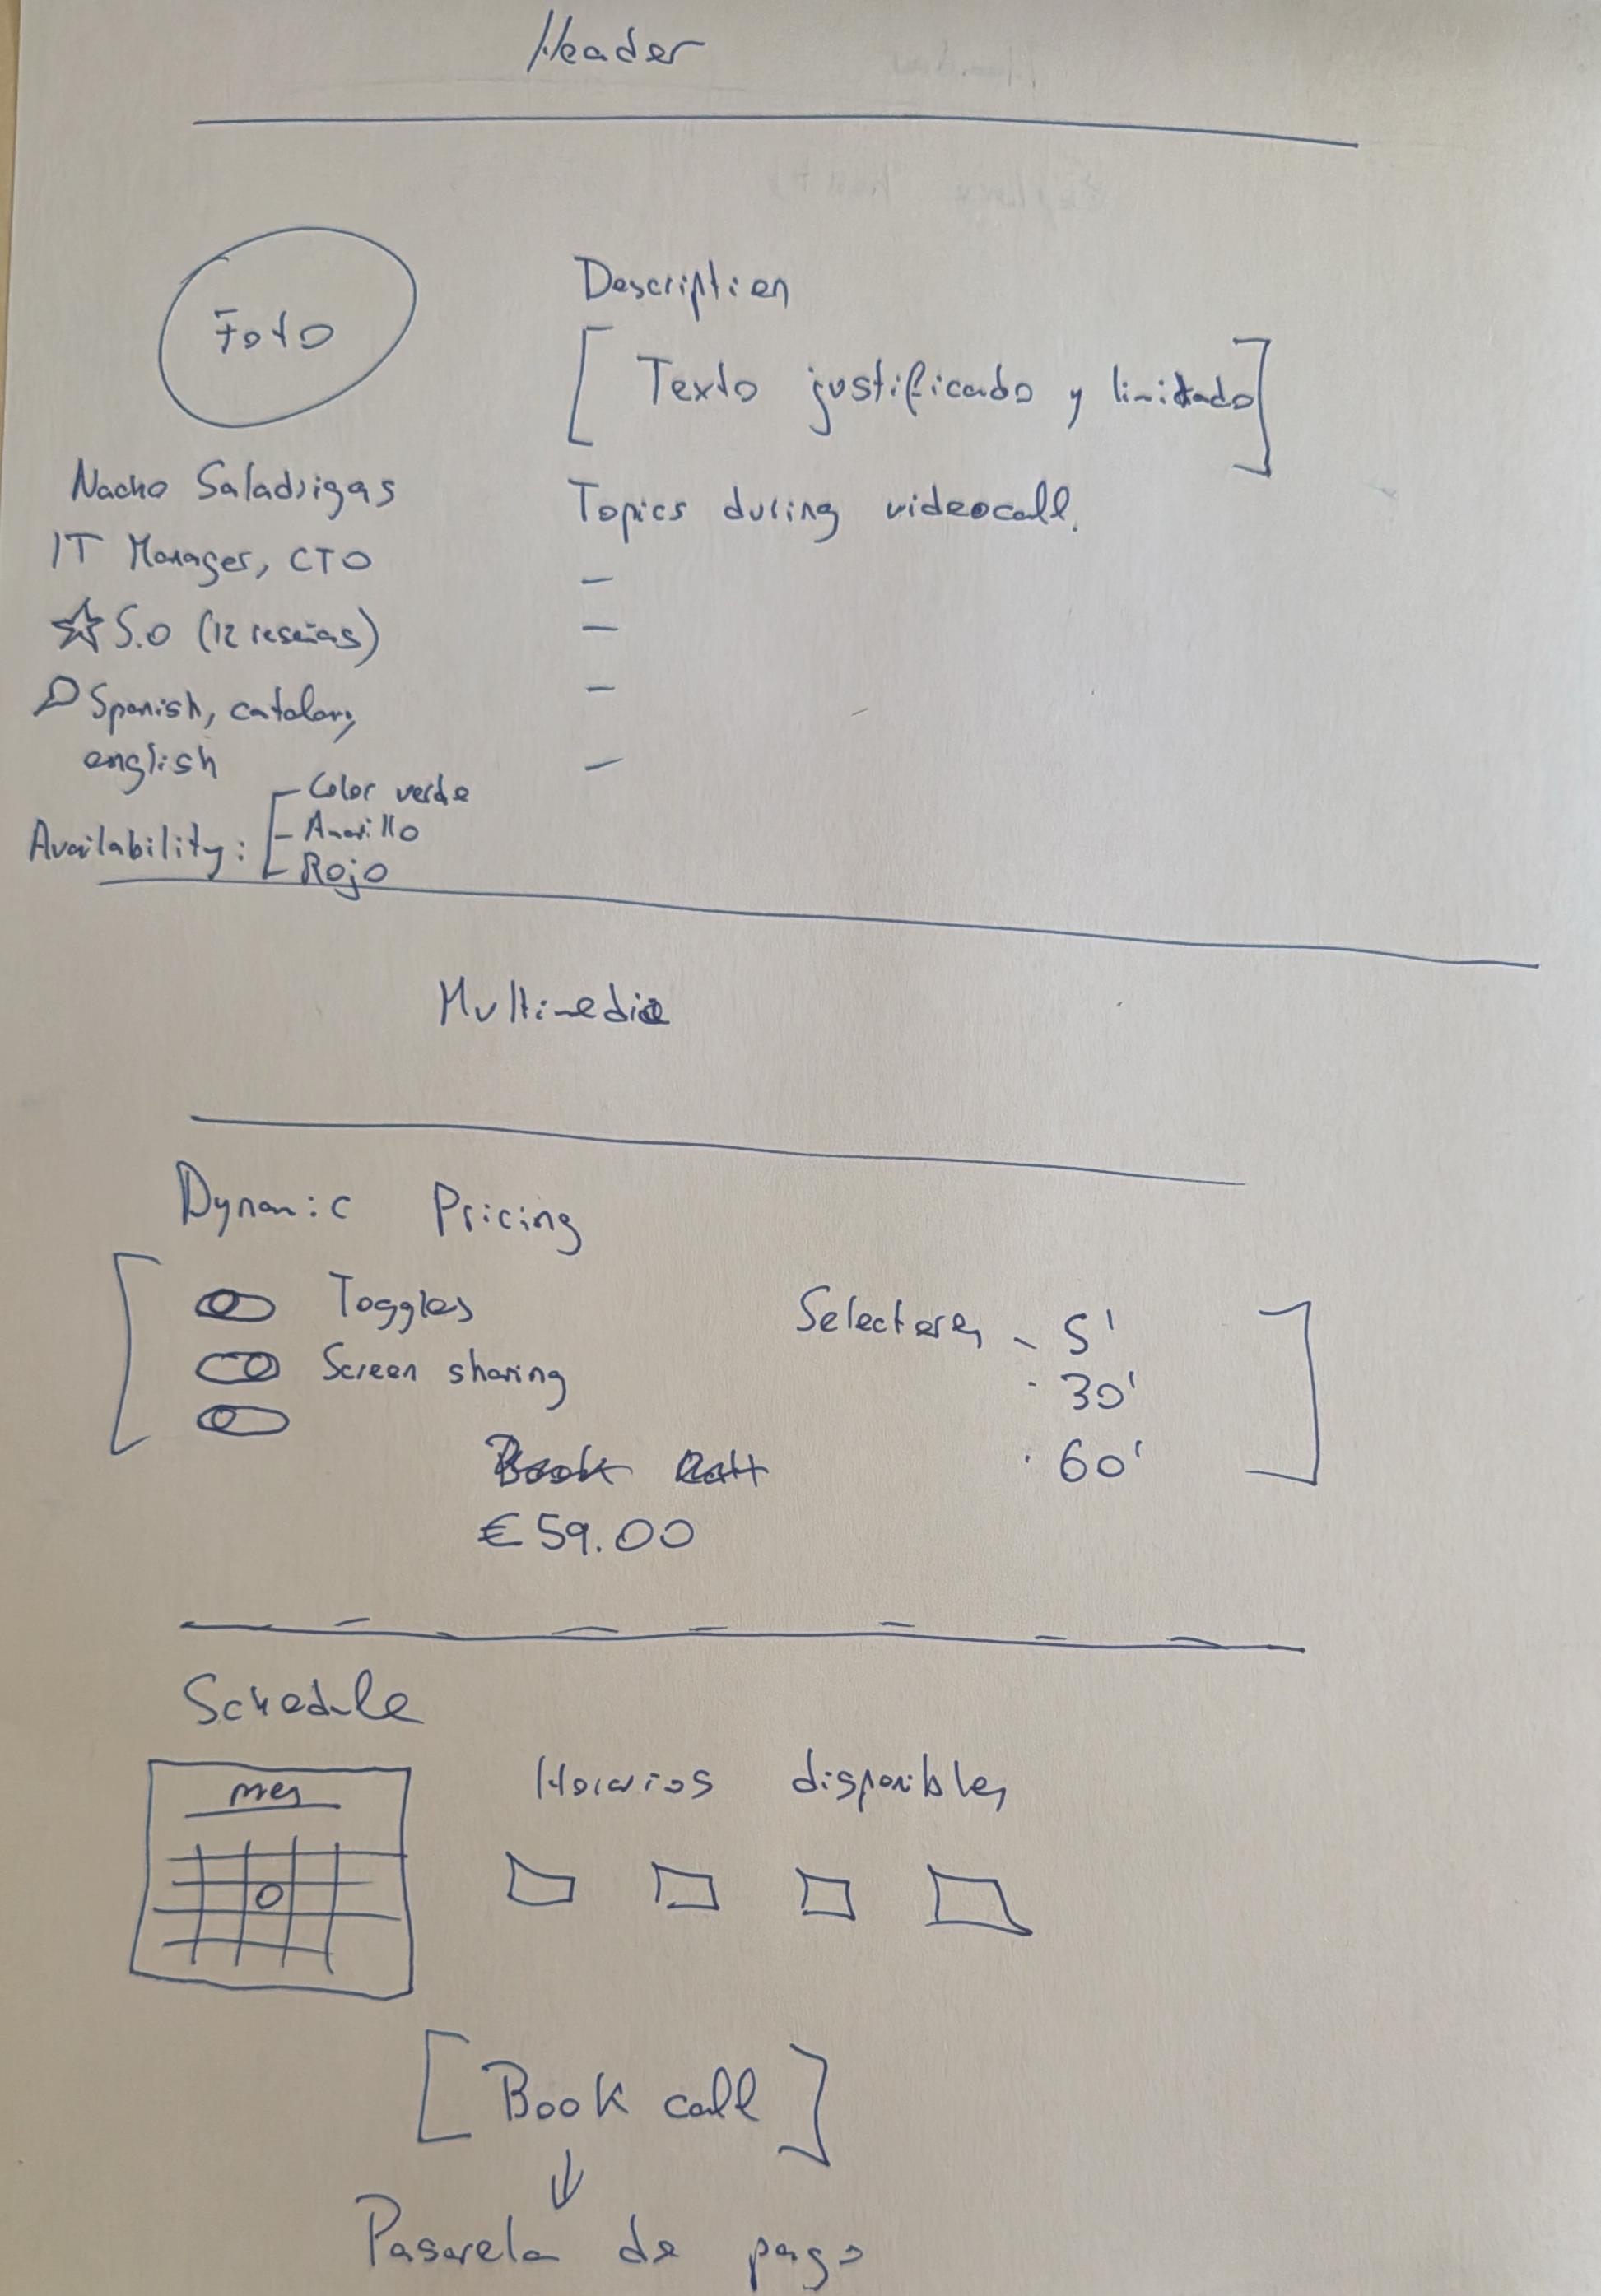 Header
Foto
Nacho Saladrigas
IT Manager, CTO
5.0 (12 reseñas)
Spanish, catalan,
english
Availability:
- Color verde
- Amarillo
- Rojo
Description
[Texto justificado y limitado]
Topics during videocall.
Multimedia
Dynamic Pricing
Toggles
Screen sharing
Selectores
- 5'
· 30'
· 60'
Book Call
€59.00
Schedule
mes
Horarios disponibles
[Book call]
Pasarela de pago